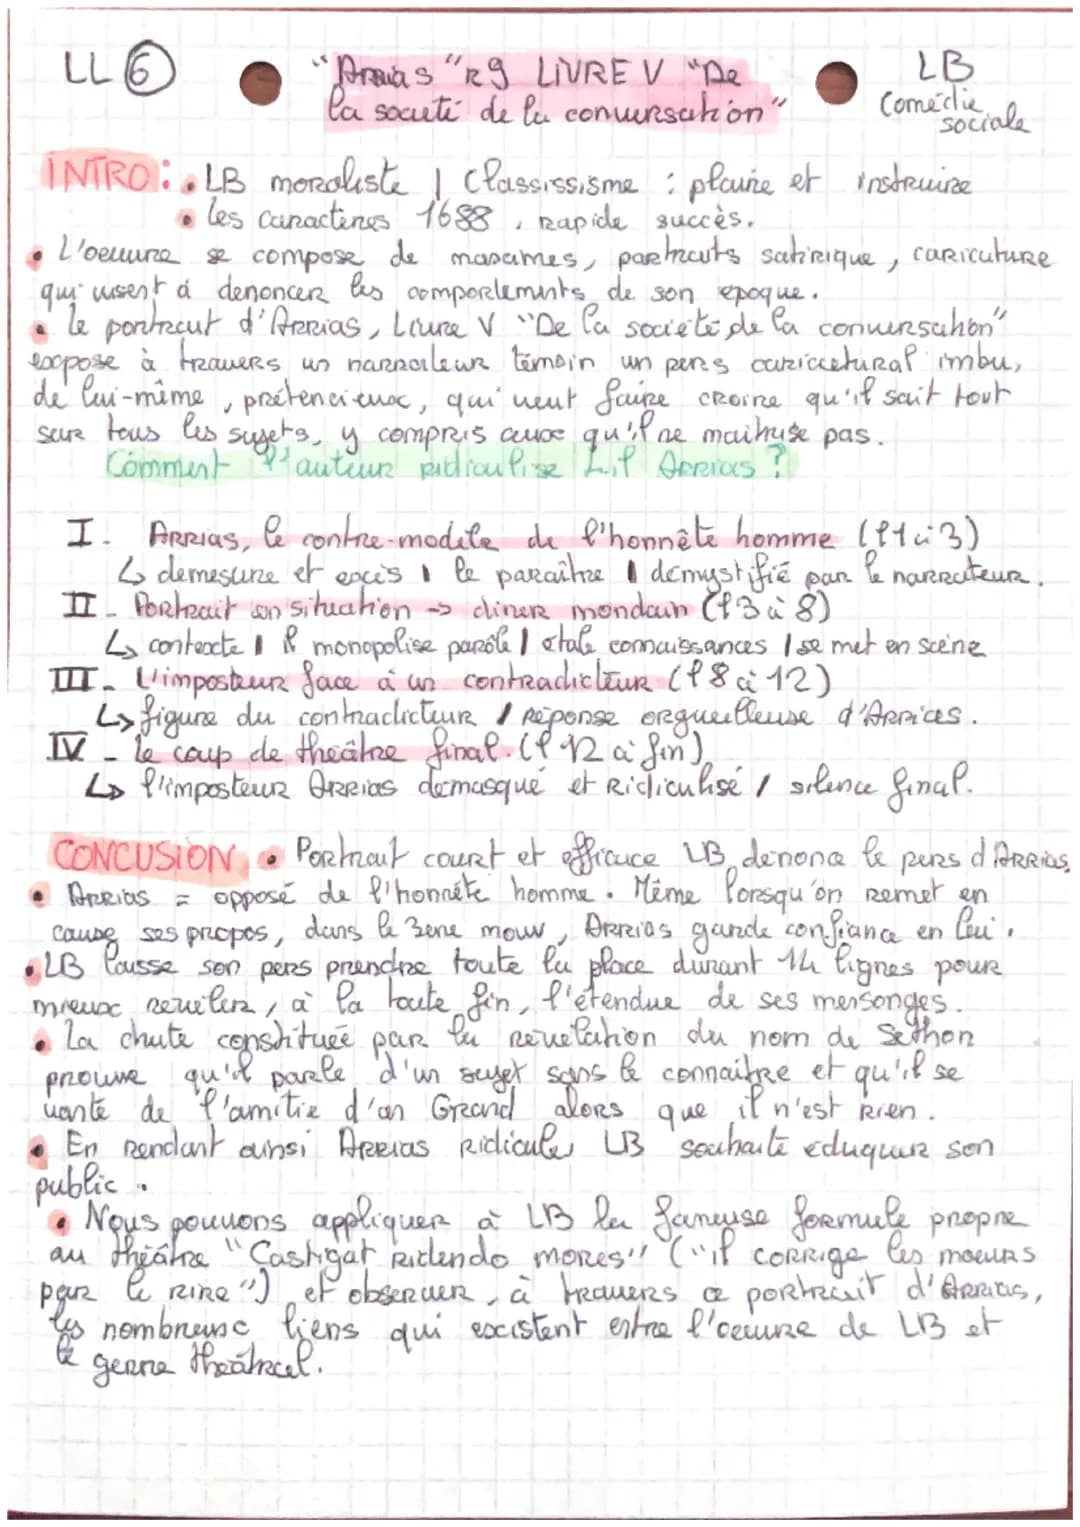 LL 6
"Arrias" R9 LIVRE V "De
la societé de la conversation"
LB
Comédie
sociale
INTRO : • LB moraliste | Classissisme : plaire et instruire
• les caracteres 1688, rapide succès.
• L'oeuvre se compose de maximes, portraits satirique, caricature
qui visent à dénoncer les comportements de son epoque.
• le portrait d'Arrias, Livre V "De la société de la conversation"
expose à travers un narrateur témoin un pers caricatural imbu,
de lui-même, prétencieux, qui veut faire croire qu'il sait tout
sur tous les sujets, y compris ceux qu'il ne maitrise pas.
Comment l'auteur ridiculise t-il Arrias ?
I - Arrias, le contre-modèle de l'honnête homme (l1 à 3)
↳ demesure et excès | le paraître | démystifié par le narrateur.
II - Portrait en situation -> diner mondain (l3 à 8)
↳ contexte | il monopolise parôle | etale connaissances | se met en scène
III - L'imposteur face à un contradicteur (l8 à 12)
↳ figure du contradicteur / Réponse orgueilleuse d'Arrias.
IV - le coup de théâtre final. (l 12 à fin)
↳ l'imposteur Arrias demasqué et Ridiculisé / silence final.
CONCUSION • Portrait court et efficace LB dénonce le pers d'Arrias.
• Arrias = opposé de l'honnête homme. Même lorsqu'on remet en
cause ses propos, dans le 3eme mouv, Arrias garde confiance en lui.
• LB laisse son pers prendre toute la place durant 14 lignes pour
mieux reveler, à la toute fin, l'étendue de ses mensonges.
• La chute constituée par la révélation du nom de Sethon
prouve qu'il parle d'un sujet sans le connaitre et qu'il se
vante de l'amitié d'un Grand alors que il n'est rien.
• En rendant ainsi Arrias ridicule, LB souhaite eduquer son
public.
• Nous pouvons appliquer à LB la fameuse formule propre
au théâtre "Castigat Ridendo mores" ("il corrige les moeurs
par le rire") et observer, à travers ce portrait d'Arrias,
les nombreux liens qui existent entre l'oeuvre de LB et
le genre théâtral.